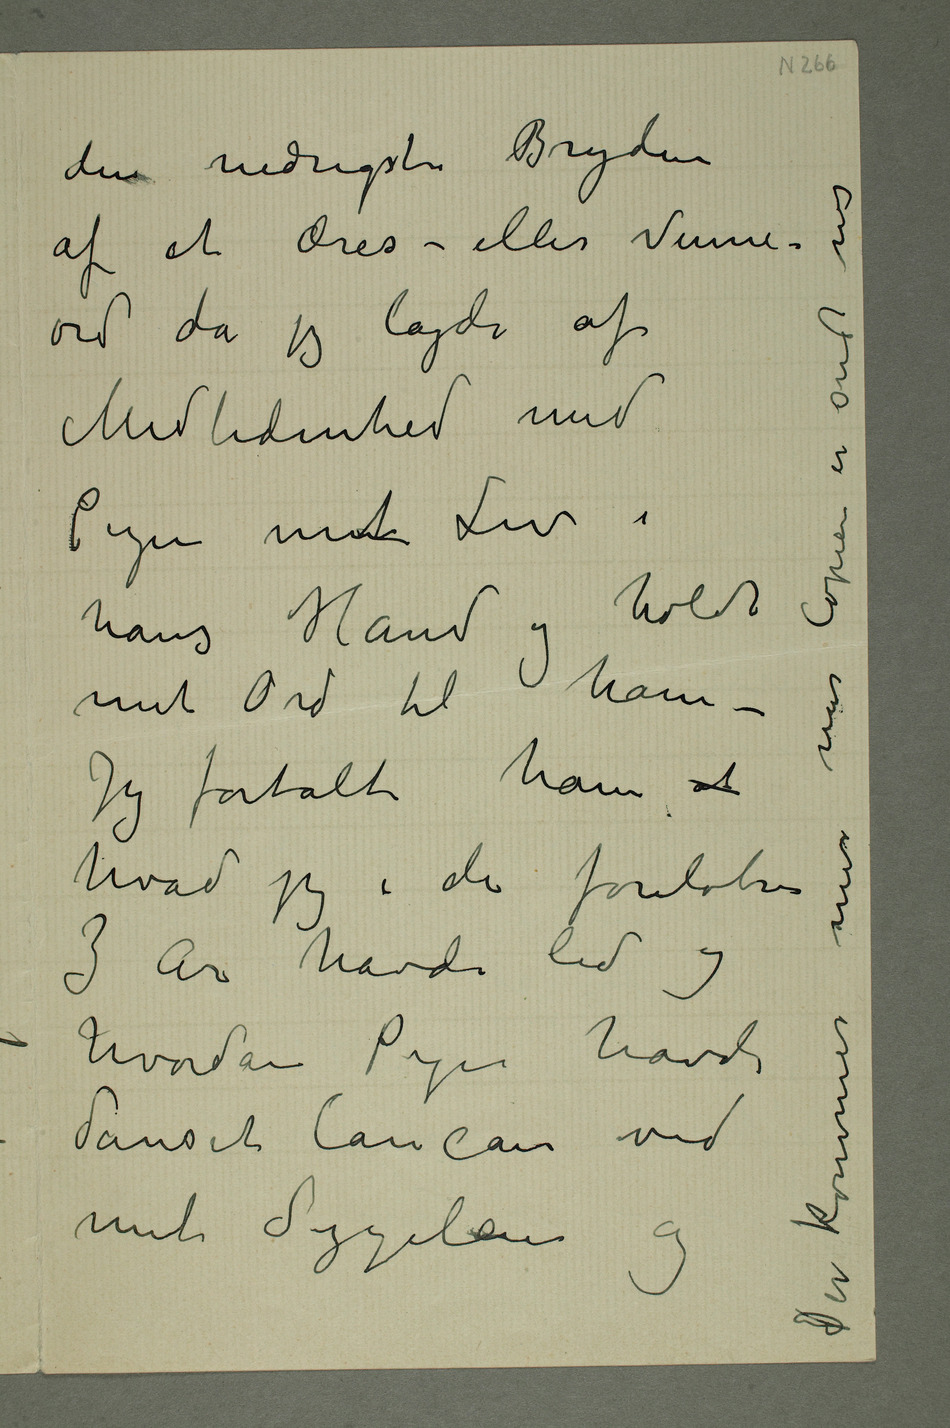 N 266
den nedrigste Bryden
af et Æres – eller Venne-
ord da jeg lagde af
Medlidenhed med
Pigen mit Liv i
hans Hånd og holdt
mit Ord til ham –
Jeg fortalte ham at
hvad jeg i de foreløbne
3 År havde lid og
hvordan Pigen havde
danset Cancan ved
mit Sygeleie og
Der kommer mer når Copien er ond